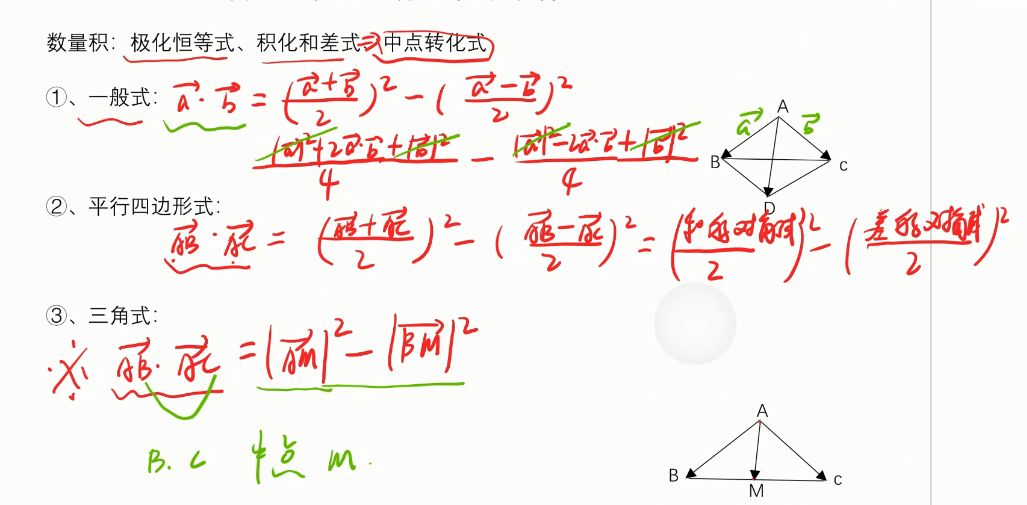 数量积：极化恒等式、积化和差式⇒中点转化式
①、一般式：a⃗·b⃗ = (a⃗+b⃗/2)² − (a⃗−b⃗/2)²
|a⃗|²+2a⃗·b⃗+|b⃗|²/4 − |a⃗|²−2a⃗·b⃗+|b⃗|²/4
A
a⃗ b⃗
B C
D
②、平行四边形式：
AB⃗·AC⃗ = (AB⃗+AC⃗/2)² − (AB⃗−AC⃗/2)² = (和的对角线/2)² − (差的对角线/2)²
③、三角式：
※ AB⃗·AC⃗ = |AM⃗|² − |BM⃗|²
B.C 中点 M.
A
B M C